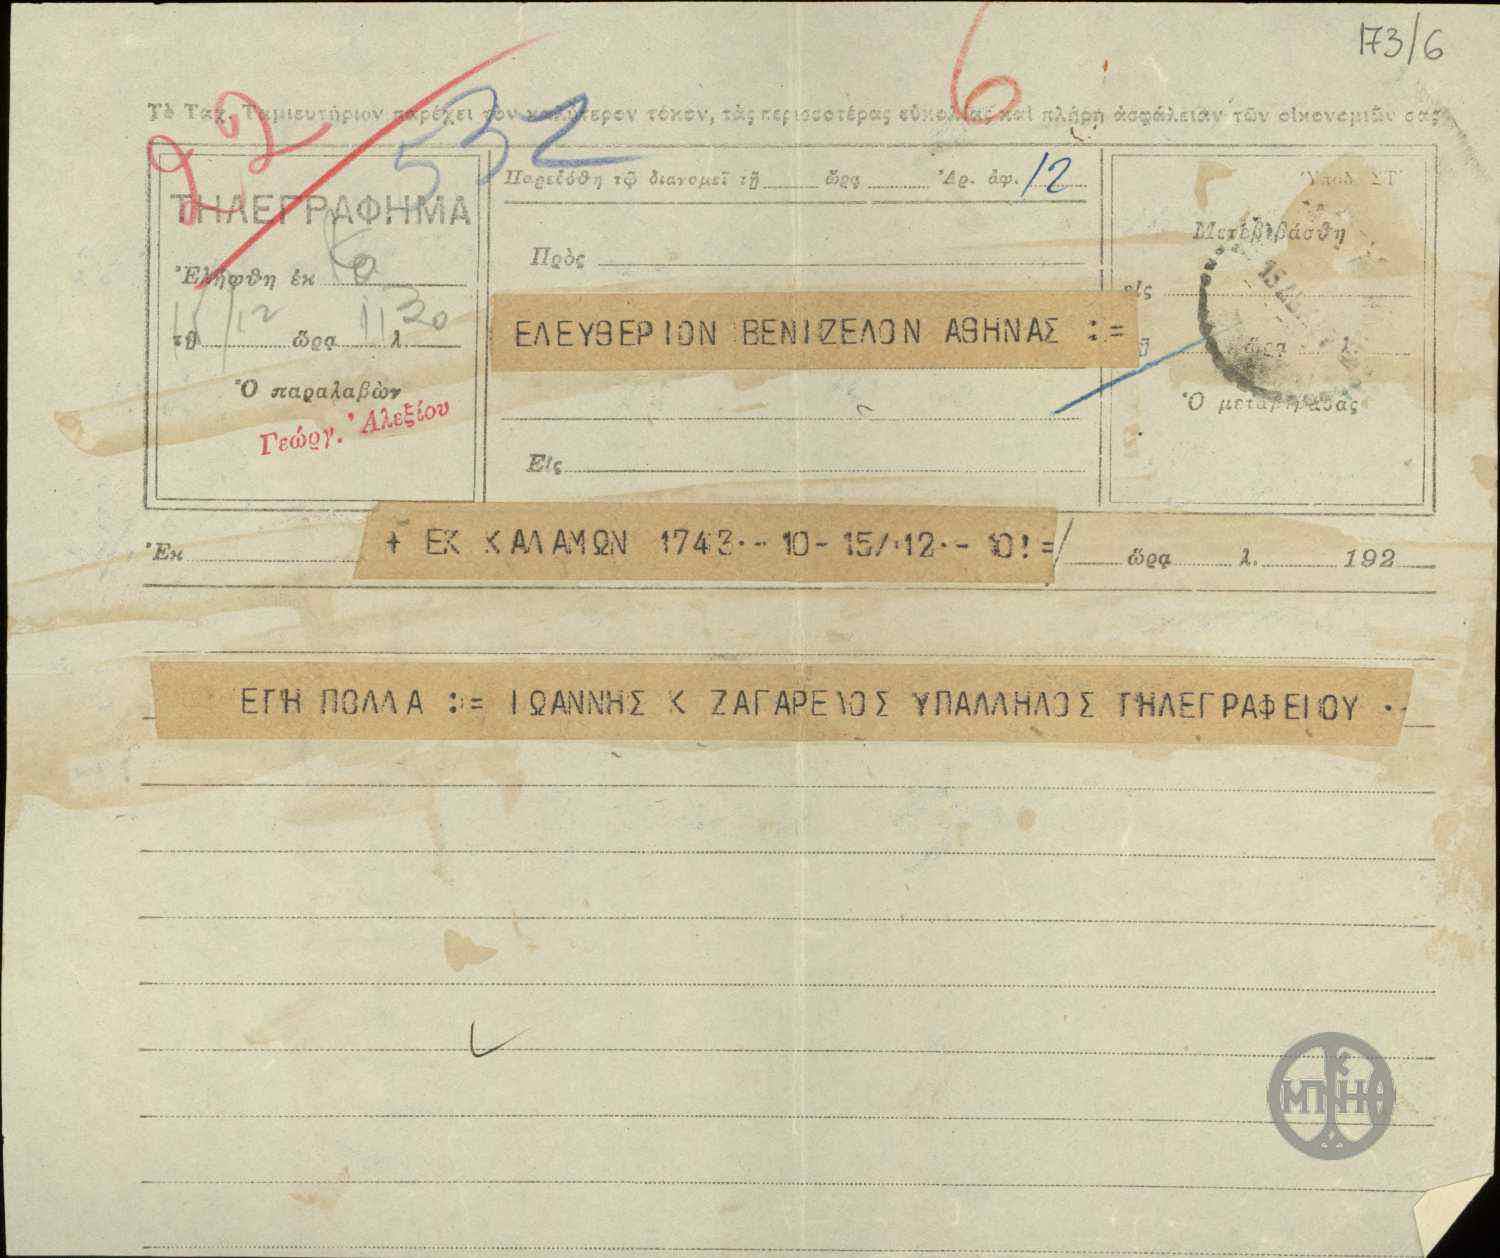 173/6
6
Τὸ Ταχ. Ταμιευτήριον παρέχει τὸν καλύτερον τόκον, τὰς περισσοτέρας εὐκολίας καὶ πλήρη ἀσφάλειαν τῶν οἰκονομιῶν σας
22
532
ΤΗΛΕΓΡΑΦΗΜΑ
Ἐλήφθη ἐκ
τῇ 15/12 ὥρᾳ 11 λ 30
Ὁ παραλαβὼν
Γεώργ. Ἀλεξίου
Παρεδόθη τῷ διανομεῖ τῇ ὥρᾳ Ἀρ. ἀφ. 12
Πρὸς
ΕΛΕΥΘΕΡΙΟΝ ΒΕΝΙΖΕΛΟΝ ΑΘΗΝΑΣ :=
Εἰς
Ὑποδ. ΣΤ'
Μετεβιβάσθη
εἰς
τῇ ὥρᾳ λ.
Ὁ μεταβιβάσας
Ἐκ + ΕΚ ΚΑΛΑΜΩΝ 1743.- 10- 15/.12.- 10!= / ὥρᾳ λ. 192
ΕΓΗ ΠΟΛΛΑ := ΙΩΑΝΝΗΣ Κ ΖΑΓΑΡΕΛΟΣ ΥΠΑΛΛΗΛΟΣ ΤΗΛΕΓΡΑΦΕΙΟΥ .-